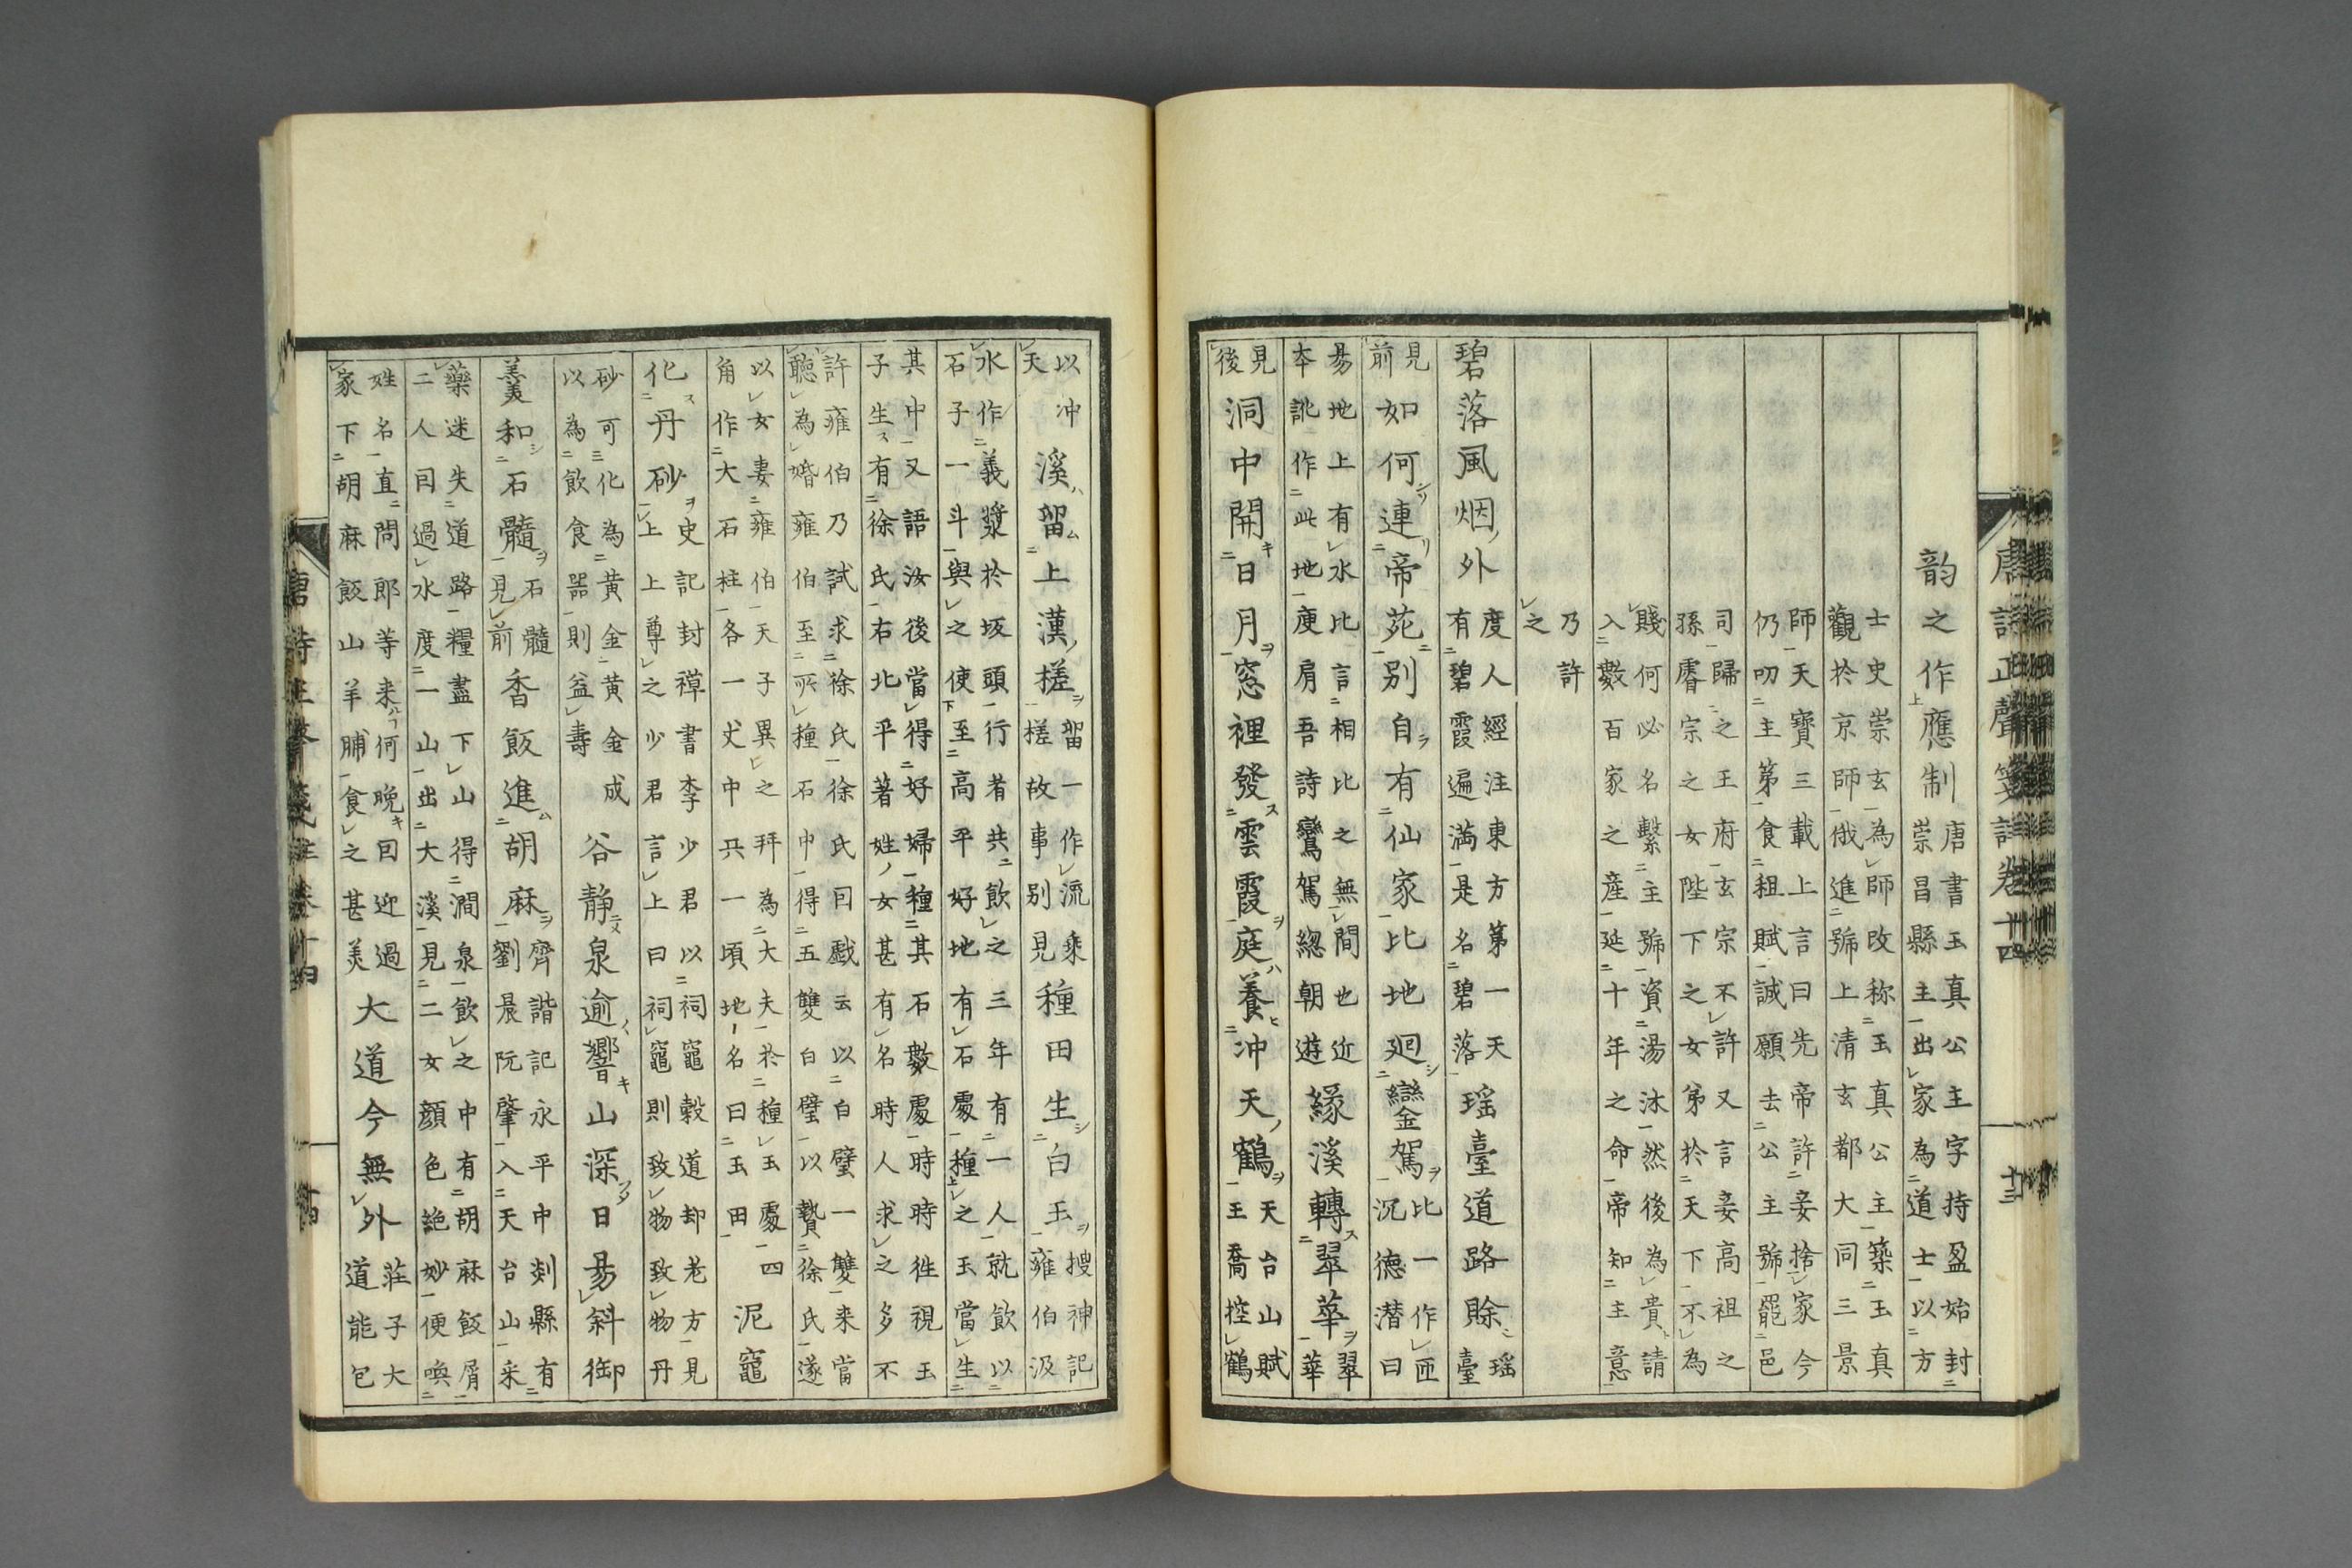 唐詩正聲箋註卷十四 十三
韵之作應制
唐書玉真公主字持盈始封
崇昌縣主出家為道士以方
士史崇玄為師改称玉真公主築玉真
觀於京師俄進號上清玄都大同三景
師天寶三載上言曰先帝許妾捨家今
仍叨主第食租賦誠願去公主號罷邑
司歸之王府玄宗不許又言妾高祖之
孫睿宗之女陛下之女弟於天下不為
賤何必名繫主號資湯沐然後為貴請
入數百家之産延十年之命帝知主意
乃許
之
碧落風烟外
度人經注東方第一天
有碧霞遍満是名碧落
瑶臺道路賖
瑶
臺
見
前
如何連帝苑別自有仙家比地廻鸞駕
比一作匝
沉德潜曰
昜地上有水比言相比之無間也近
本訛作此地庾肩吾詩鸞駕總朝遊
緣溪轉翠華
翠
華
見
後
洞中開日月窓裡發雲霞庭養冲天鶴
天台山賦
王喬控鶴
以冲
天
溪留上漢槎
留一作流乘
槎故事別見
種田生白玉
搜神記
雍伯汲
水作義漿於坂頭行者共飲之三年有一人就飲以
石子一斗與之使至高平好地有石處種之玉當生
其中又語汝後當得好婦種其石數處時時徃視玉
子生有徐氏右北平著姓女甚有名時人求之多不
許雍伯乃試求徐氏徐氏曰戯云以白璧一雙来當
聽為婚雍伯至所種石中得五雙白璧以贄徐氏遂
以女妻雍伯天子異之拜為大夫於種玉處四
角作大石柱各一丈中共一頃地名曰玉田
泥竈
化丹砂
史記封禅書李少君以祠竈穀道却老方見
上上尊之少君言上曰祠竈則致物致物丹
砂可化為黄金黄金成
以為飲食噐則益壽
谷静泉逾響山深日昜斜御
羮和石髓
石髓
見前
香飯進胡麻
齊諧記永平中剡縣有
劉晨阮肇入天台山采
藥迷失道路糧盡下山得澗泉飲之中有胡麻飯屑
二人曰過水度一山出大溪見二女顔色絶妙便喚
姓名直問郎等来何晩曰迎過
家下胡麻飯山羊脯食之甚美
大道今無外
荘子大
道能包
唐詩正聲箋註卷十四 十四